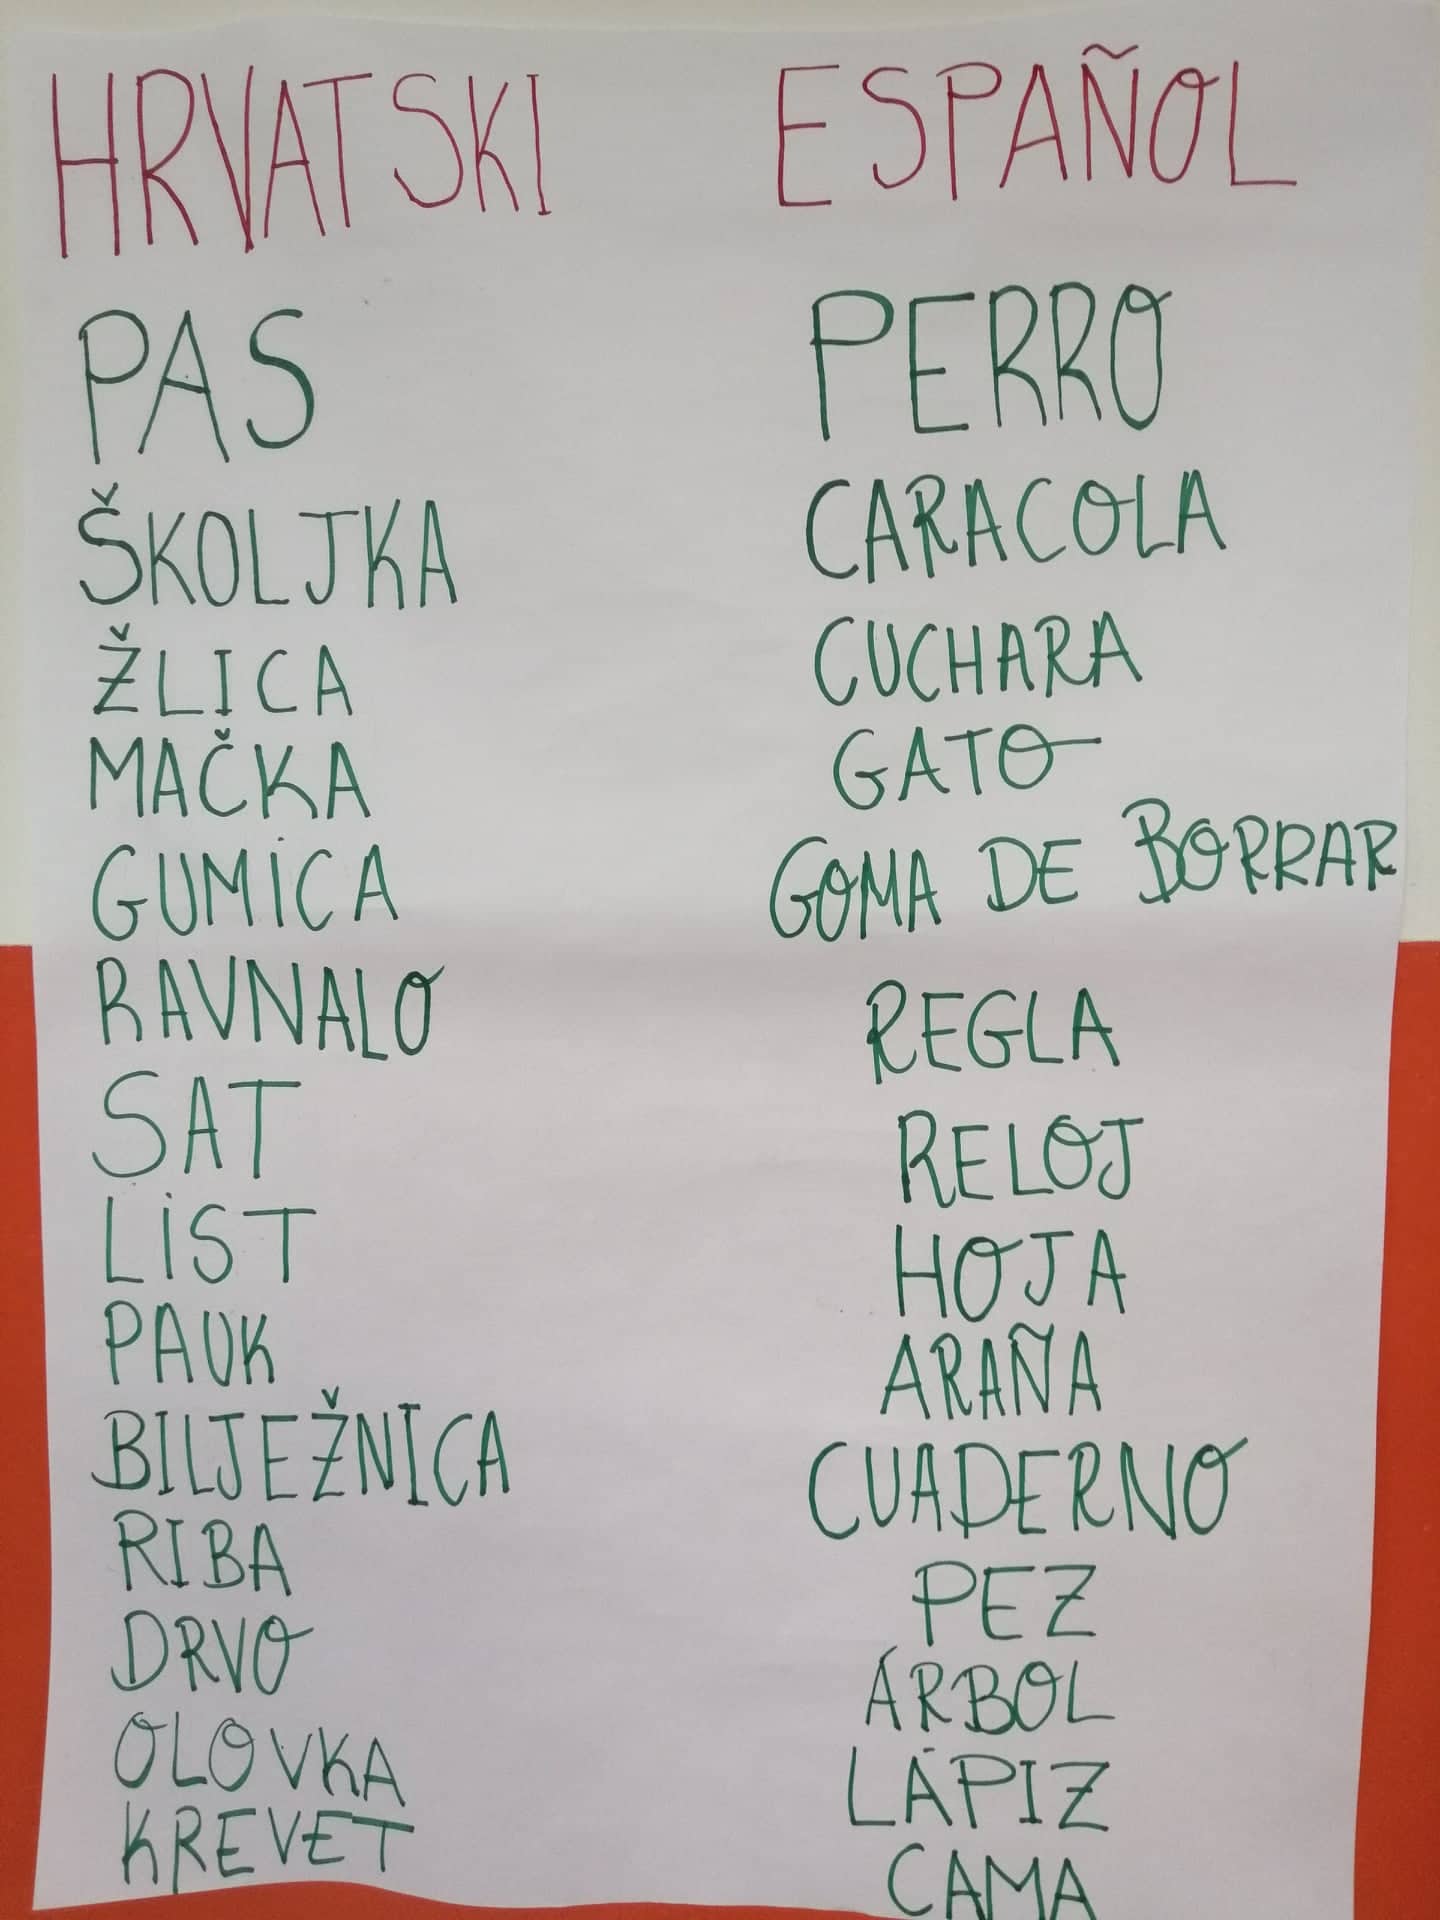 HRVATSKI ESPAÑOL
PAS PERRO
ŠKOLJKA CARACOLA
ŽLICA CUCHARA
MAČKA GATO
GUMICA GOMA DE BORRAR
RAVNALO REGLA
SAT RELOJ
LIST HOJA
PAUK ARAÑA
BILJEŽNICA CUADERNO
RIBA PEZ
DRVO ÁRBOL
OLOVKA LÁPIZ
KREVET CAMA